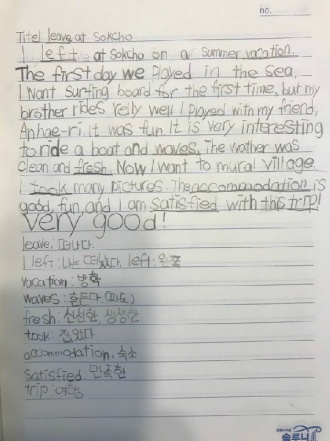 no.
Titel leave at Sokcho
I left at Sokcho on a summer vacation.
The first day we played in the sea.
I Want surfing board for the first time, but my
brother rides relly well I played with my friend,
An hae-ri. It was fun It is very interesting
to ride a boat and waves. The wather was
clean and fresh. Now I want to mural village
I took many pictures. The accommodation is
good, fun, and I am satisfied with this trip!
very good!
leave, 떠나다.
I left : 나는 떠났다. left : 왼쪽
vacation : 방학
waves : 흔든다 (파도)
fresh : 신선한, 생생한
took : 찍었다
accommodation, 숙소
satisfied, 만족한
trip 여행
솔루니